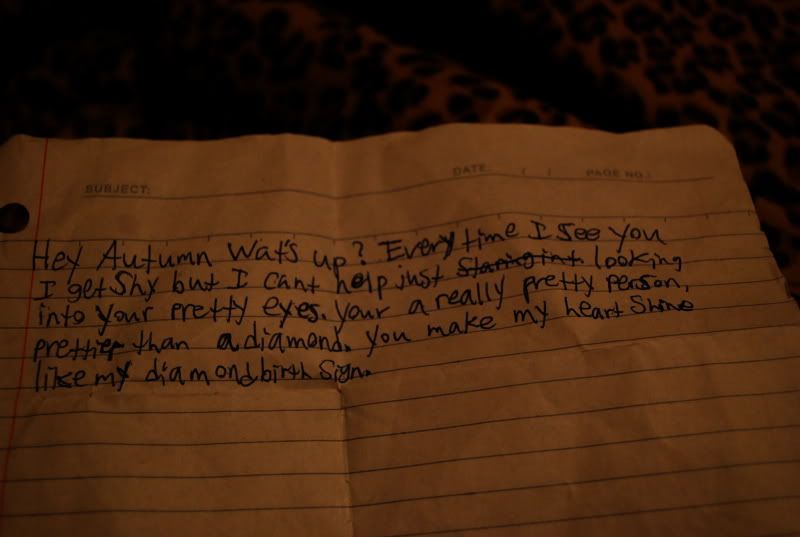 SUBJECT:
DATE: / / PAGE NO.:
Hey Autumn Wat's up? Every time I see you
I get shy but I cant help just looking
into your pretty eyes. your a really pretty person,
prettier than a diamond. you make my heart Shine
like my diamond birth sign.